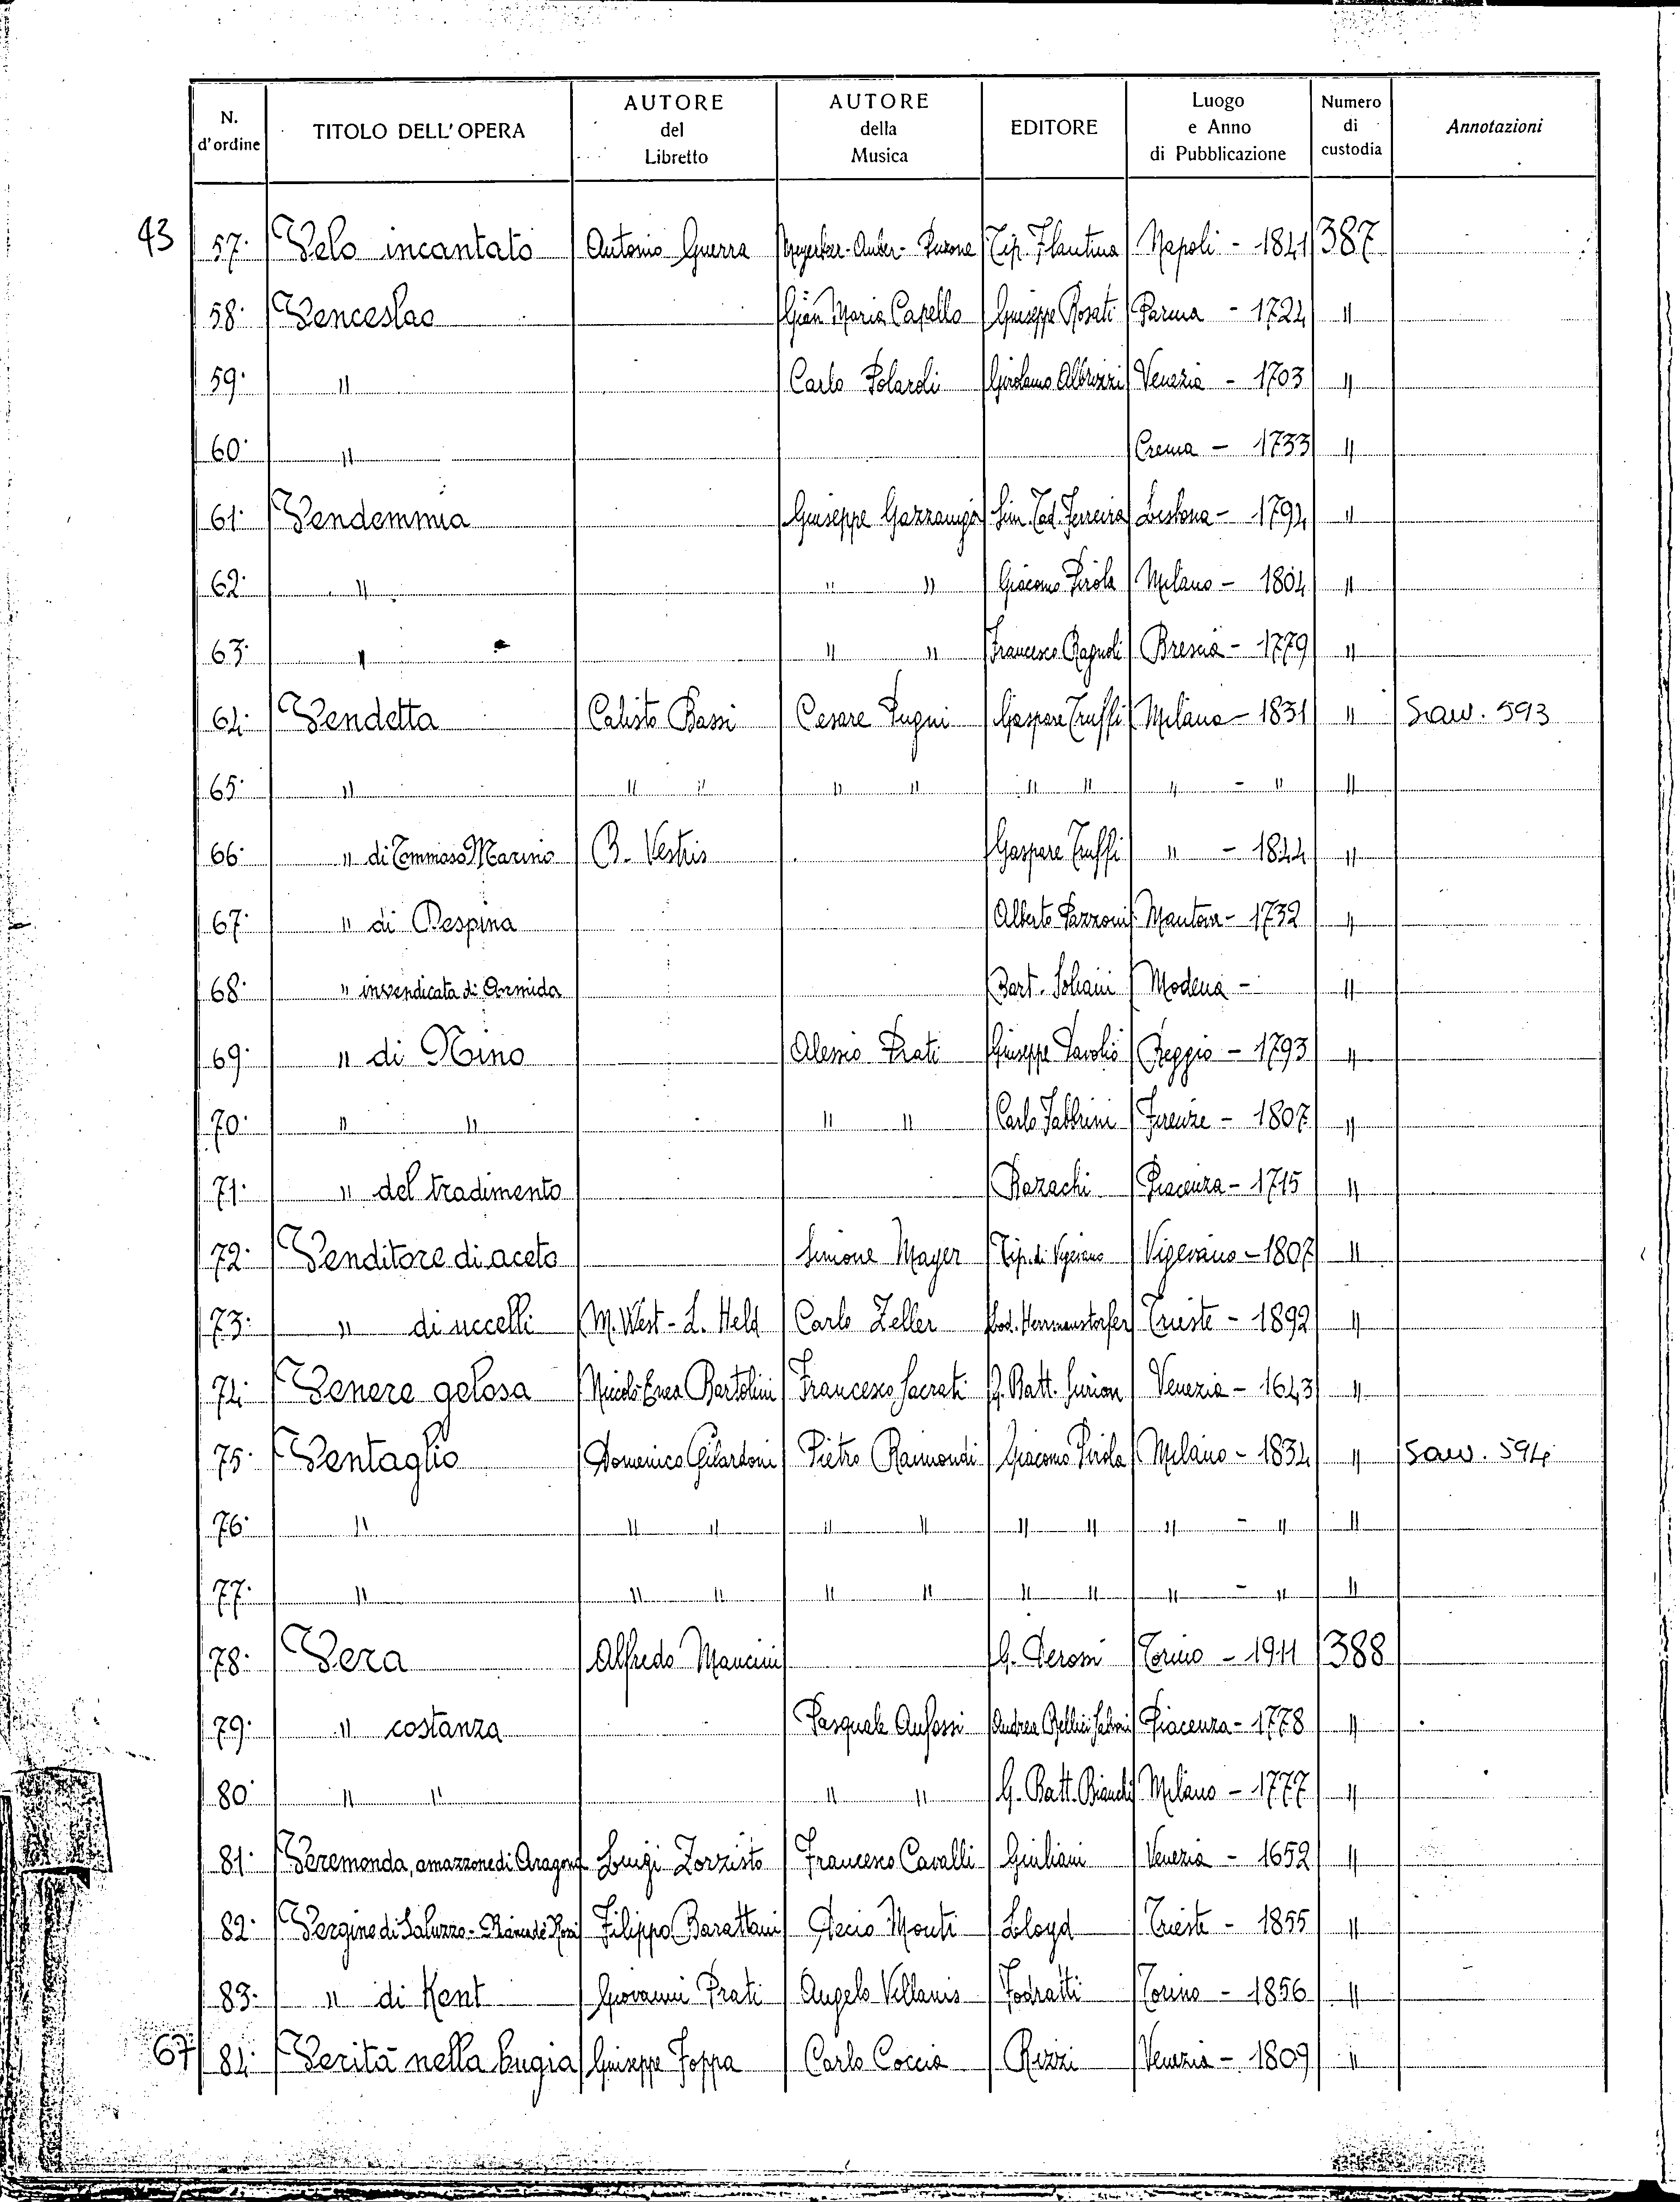 N. d'ordine | TITOLO DELL'OPERA | AUTORE del Libretto | AUTORE della Musica | EDITORE | Luogo e Anno di Pubblicazione | Numero di custodia | Annotazioni
43 57. Velo incantato | Antonio Guerra | Meyerber-Auber-Puzone | Tip. Flautina | Napoli - 1841 | 387
58. Venceslao | Gian Maria Capello | Giuseppe Rosati | Parma - 1724 | "
59. " | Carlo Polaroli | Girolamo Albrizzi | Venezia - 1703 | "
60. " | Crema - 1733 | "
61. Vendemmia | Giuseppe Gazzaniga | Sim. Tad. Ferreira | Lisbona - 1794 | "
62. " | " " | Giacomo Pirola | Milano - 1804 | "
63. " | " " | Francesco Ragnoli | Brescia - 1779 | "
64. Vendetta | Calisto Bassi | Cesare Pugni | Gaspare Truffi | Milano - 1831 | " | Saw. 593
65. " | " " | " " | " " | " - " | "
66. " di Tommaso Marino | B. Vestris | Gaspare Truffi | " - 1844 | "
67. " di Despina | Alberto Pazzoni | Mantova - 1732 | "
68. " invendicata di Armida | Bart. Soliani | Modena - | "
69. " di Nino | Alessio Prati | Giuseppe Davolio | Reggio - 1793 | "
70. " " | " " | Carlo Fabbrini | Firenze - 1807 | "
71. " del tradimento | Bazachi | Piacenza - 1715 | "
72. Venditore di aceto | Simone Mayer | Tip. di Vigevano | Vigevano - 1807 | "
73. " di uccelli | M. West - L. Held | Carlo Zeller | Herrmanstorfer | Trieste - 1892 | "
74. Venere gelosa | Niccolò Enea Bartolini | Francesco Sacrati | G. Batt. Surian | Venezia - 1643 | "
75. Ventaglio | Domenico Gilardoni | Pietro Raimondi | Giacomo Pirola | Milano - 1834 | " | Saw. 594
76. " | " " | " " | " " | " - " | "
77. " | " " | " " | " " | " - " | "
78. Vera | Alfredo Mancini | G. Derossi | Torino - 1911 | 388
79. " costanza | Pasquale Anfossi | Andrea Bellici Salvoni | Piacenza - 1778 | "
80. " " | " " | G. Batt. Bianchi | Milano - 1777 | "
81. Veremonda, amazzone di Aragona | Luigi Zorzisto | Francesco Cavalli | Giuliani | Venezia - 1652 | "
82. Vergine di Saluzzo - Bianca de' Rossi | Filippo Barattani | Decio Monti | Lloyd | Trieste - 1855 | "
83. " di Kent | Giovanni Prati | Angelo Villanis | Fodratti | Torino - 1856 | "
67 84. Verità nella bugia | Giuseppe Foppa | Carlo Coccia | Rizzi | Venezia - 1809 | "